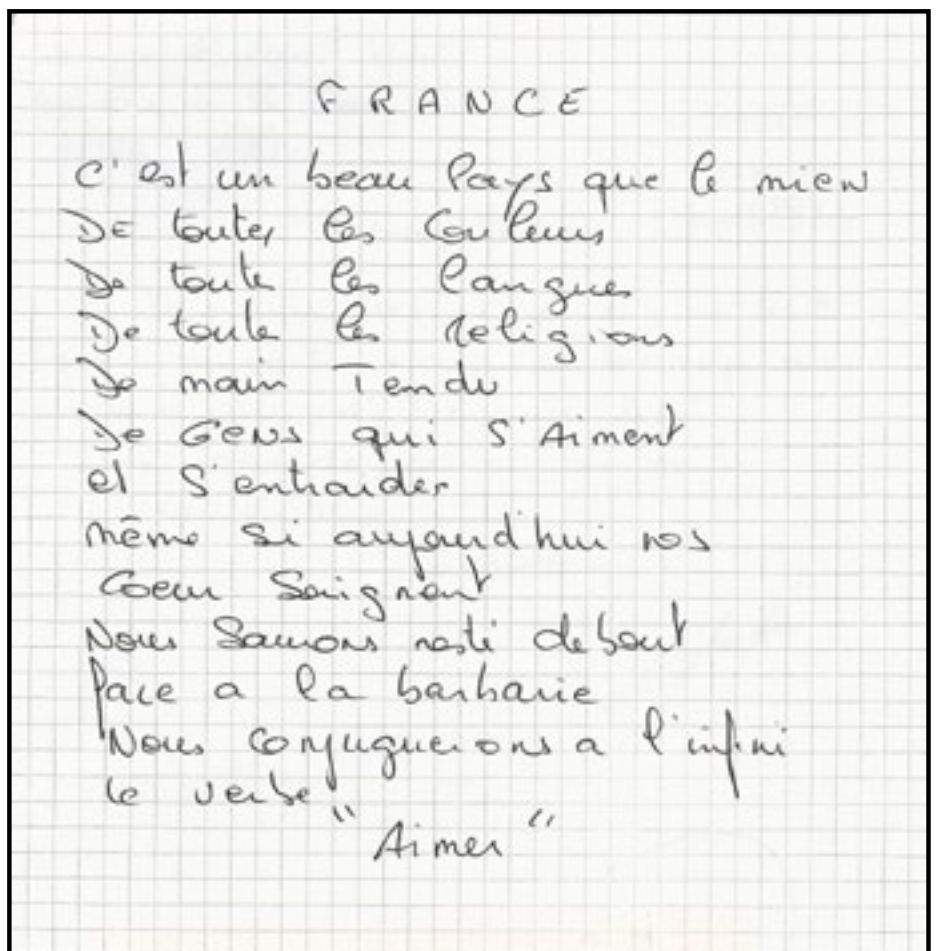 FRANCE
C'est un beau Pays que le mien
DE toutes les Couleurs
De toute les langues
De toute les religions
De main Tendu
De Gens qui S'Aiment
et S'entraider
même si aujourd'hui nos
Coeur Saignent
Nous Saurons resté debout
face a la barbarie
Nous conjuguerons a l'infini
le verbe
"Aimer"